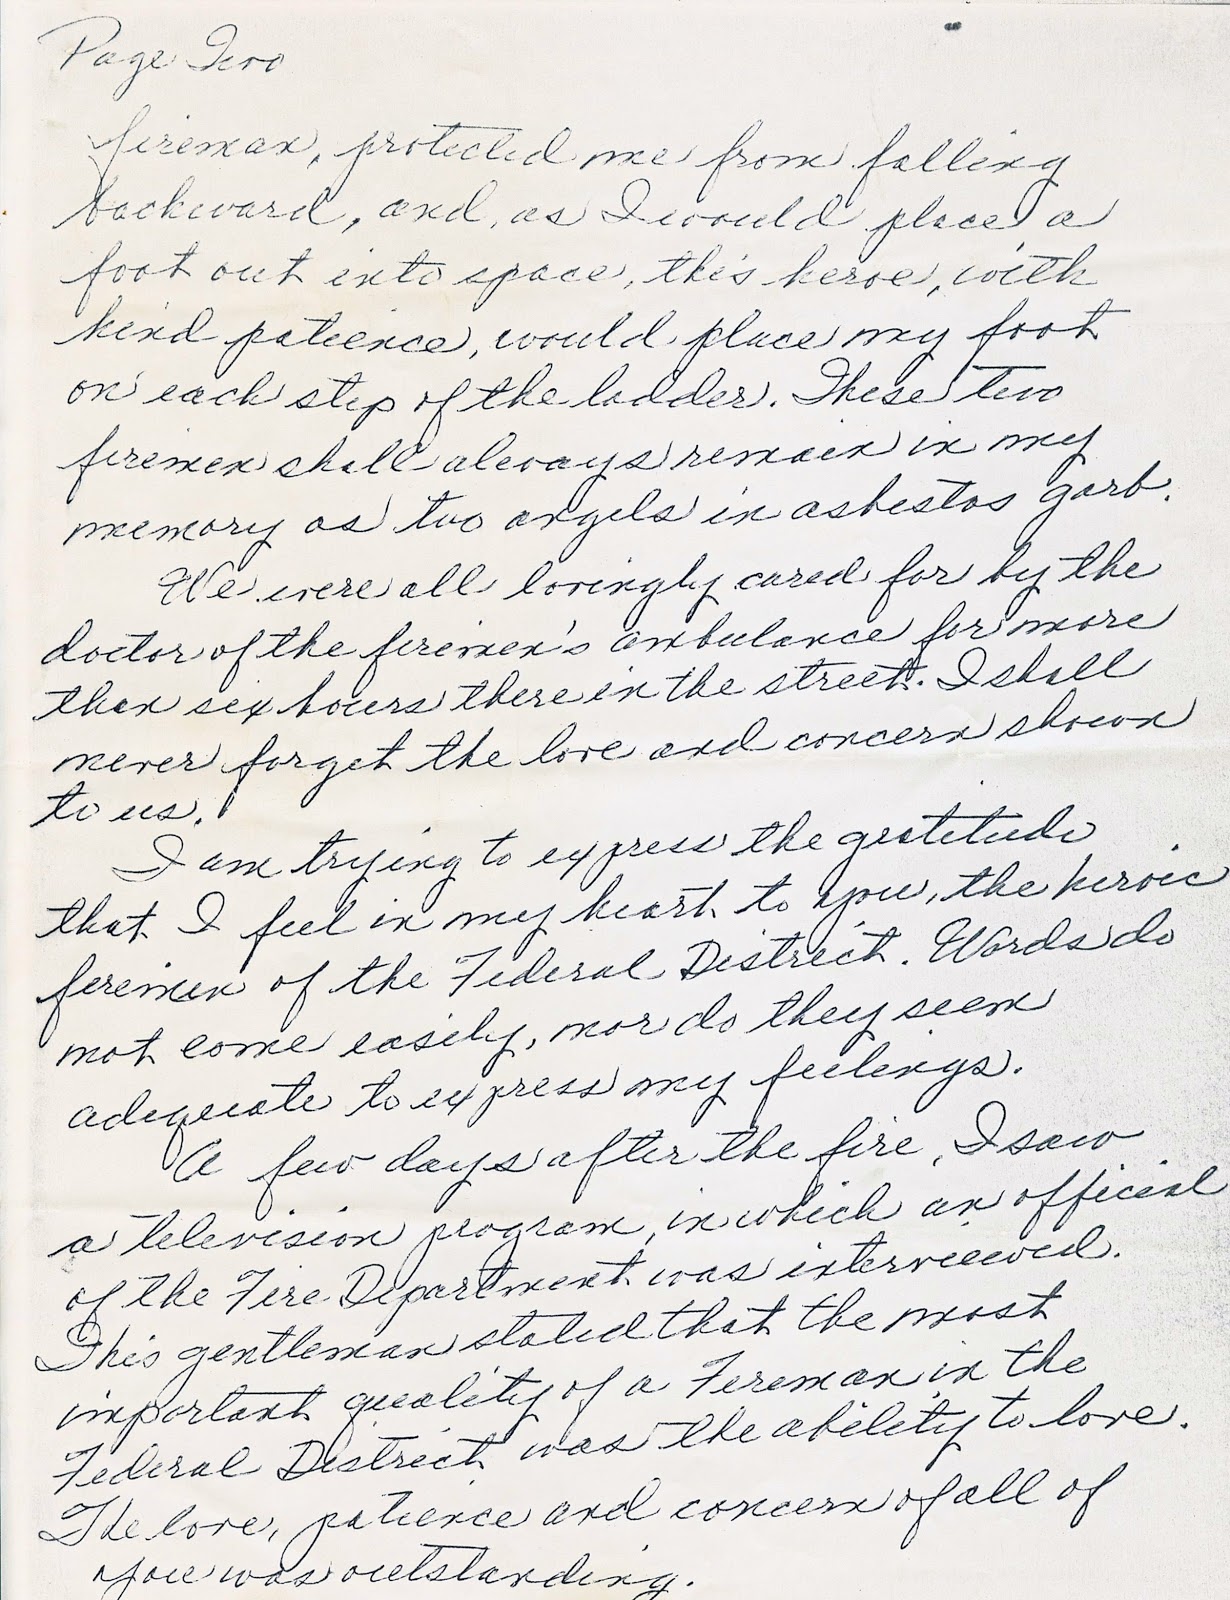 Page Two
fireman, protected me from falling
backward, and, as I would place a
foot out into space, this heroe, with
kind patience, would place my foot
on each step of the ladder. These two
firemen shall always remain in my
memory as two angels in asbestos garb.
We were all lovingly cared for by the
doctor of the firemen's ambulance for more
than six hours there in the street. I shall
never forget the love and concern shown
to us.
I am trying to express the gratitude
that I feel in my heart to you, the heroic
firemen of the Federal District. Words do
not come easily, nor do they seem
adequate to express my feelings.
A few days after the fire, I saw
a television program, in which an official
of the Fire Department was interviewed.
This gentleman stated that the most
important quality of a Fireman in the
Federal District was the ability to love.
The love, patience and concern of all of
you was outstanding.